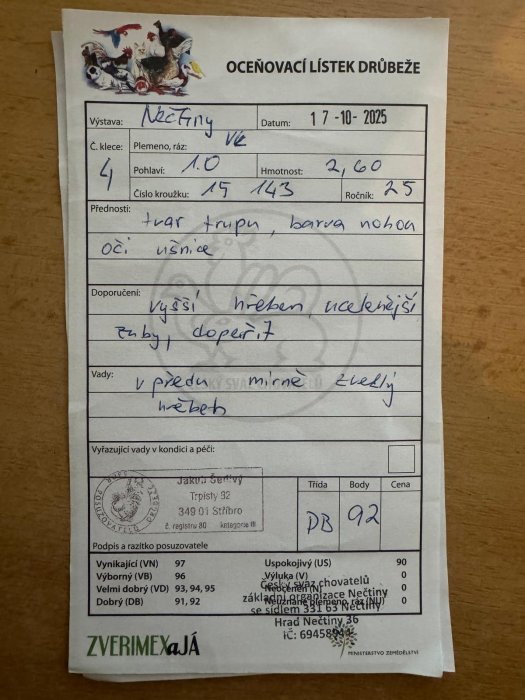 OCEŇOVACÍ LÍSTEK DRŮBEŽE
Výstava: Nečtiny Datum: 17-10-2025
Č. klece: 4
Plemeno, ráz: VK
Pohlaví: 1.0 Hmotnost: 2,60
Číslo kroužku: 15 143 Ročník: 25
Přednosti: tvar trupu, barva nohou
oči ušnice
Doporučení: vyšší hřeben, ucelenější
zuby, dopeřit
Vady: v předu mírně zvedlý
hřeben
Vyřazující vady v kondici a péči:
Jakub Šedivý
Trpisty 92
349 01 Stříbro
č. registru 80 kategorie III
Třída Body Cena
DB 92
Podpis a razítko posuzovatele
Vynikající (VN) 97 Uspokojivý (US) 90
Výborný (VB) 96 Výluka (V) 0
Velmi dobrý (VD) 93, 94, 95 Neoceněn (N) 0
Dobrý (DB) 91, 92 Neuznané plemeno, ráz (NU) 0
Český svaz chovatelů
základní organizace Nečtiny
se sídlem 331 63 Nečtiny
Hrad Nečtiny 36
IČ: 69458944
ZVERIMEX a JÁ
MINISTERSTVO ZEMĚDĚLSTVÍ